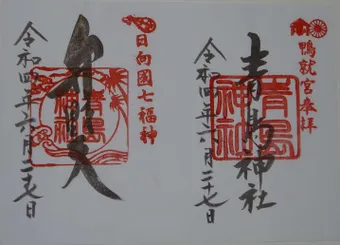 鴨就宮奉拝
青島神社
青島神社
令和四年六月二十七日
日向國七福神
弁財天
青島神社
令和四年六月二十七日